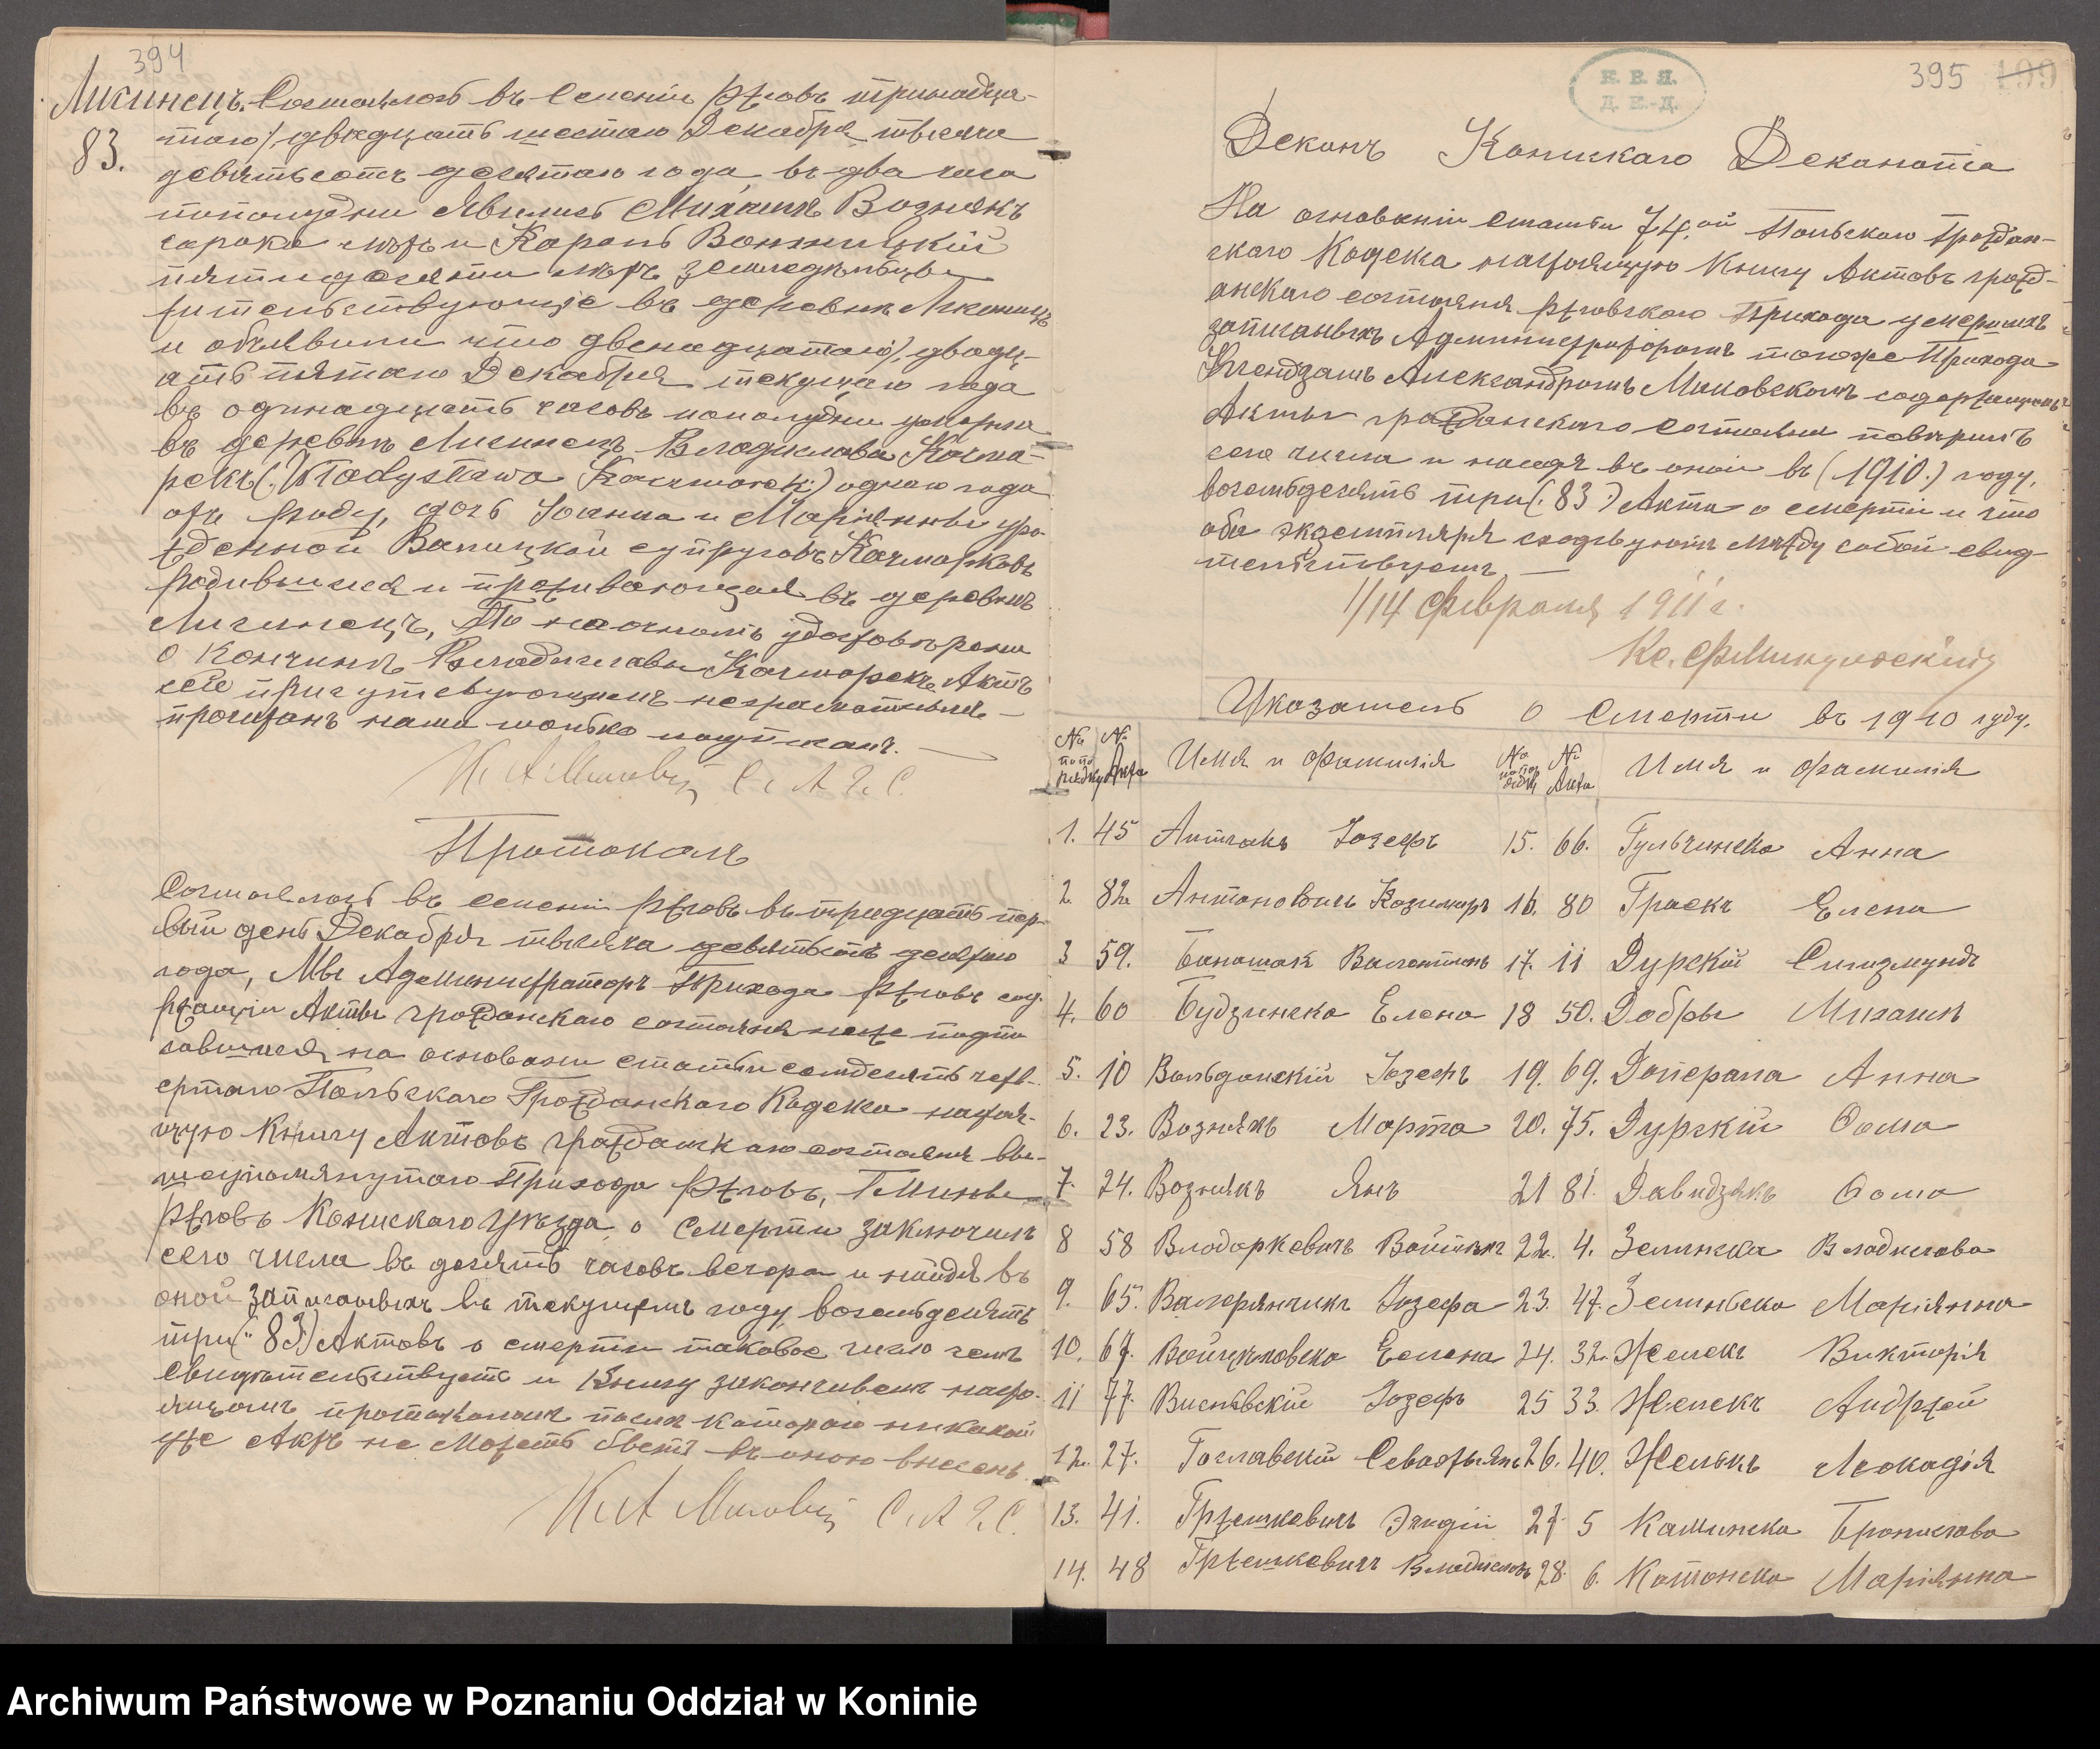 394
Лигинецъ. Состоялось въ Селеніи Ржговъ тринадца-
83.
таго/двадцать шестаго Декабря тысяча
девятьсотъ десятаго года, въ два часа
пополудни Явились Михаилъ Вознякъ
сорока лѣтъ и Кароль
пятидесяти лѣтъ земледѣльцы
жительствующіе въ деревнѣ Лигинецъ
и объявили что двенадцатаго/двадц-
ать пятаго Декабря текущаго года
въ одинадцать часовъ пополудни умерла
въ деревнѣ Лигинецъ Владислава Качма-
рекъ (: Władysława Kaczmarek :) одного года
отъ роду, дочь Іоанна и Маріянны уро-
жденной супруговъ Качмарковъ
родившаяся и проживающая въ деревнѣ
Лигинецъ, По наочномъ удостовѣреніи
о Кончинѣ Владиславы Качмарекъ Актъ
сей присутствующимъ неграмотнымъ
прочитанъ нами только подписанъ.
С. А. Г. С.
Протоколъ
Состоялось въ селеніи Ржговъ въ тридцать пер-
вый день Декабря тысяча девятьсотъ десятаго
года, Мы Администраторъ Прихода Ржговъ сод-
ржащій Акты гражданскаго состоянія ниже подпи
савшійся, на основаніи статьи семдесятъ четв-
ертаго Польскаго Гражданскаго Кодекса настоя-
щую Книгу Актовъ гражданскаго состоянія вы-
шеупомянутаго Прихода Ржговъ, Гмины
Ржговъ Конинскаго Уѣзда, о Смерти заключилъ
сего числа въ десять часовъ вечера и найдя въ
оной записанныхъ въ текущемъ году восемьдесятъ
три (: 83 :) Актовъ о смерти таковое число
свидѣтельствуетъ и Книгу заканчиваетъ насто-
ящимъ протоколомъ послѣ котораго никакой
уже Актъ не Можетъ быть въ оною внесенъ.
С. А. Г. С.
К. В. П.
Д. Е.-Д.
395 199
Деканъ Конинскаго Деканата
На основаніи Статьи 74.ой Польскаго Граждан-
скаго Кодекса настоящую Книгу Актовъ гражд-
анскаго состоянія Ржговскаго Прихода умершихъ
записанныхъ Администраторомъ тогоже Прихода
Ксендзамъ Александромъ содержащимъ
Акты гражданскаго Состоянія повѣрилъ
сего числа и найдя въ оной въ (1910.) году,
восемьдесятъ три (: 83 :) Акта о смерти и что
оба экземпляра сходствуютъ между собой свид-
тельствуетъ —
1/14 Февраля 1911 г.
Указатель о Смерти въ 1910 году.
№ попо рядку № Акта Имя и Фамилія № попо рядку № Акта Имя и Фамилія
1. 45 Антчакъ Іозефъ 15. 66. Гульчинска Анна
2. 82 Антоновичъ Казимиръ 16. 80 Граекъ Елена
3 59. Банашакъ Валентинъ 17. 11 Дурскій Сигизмундъ
4. 60 Будзинска Елена 18 50. Добры Михаилъ
5. 10 Вольданскій Іозефъ 19. 69. Доперала Анна
6. 23. Вознякъ Марта 20. 75. Дурскій Ѳома
7. 24. Вознякъ Янъ 21 81. Давидзякъ Ѳома
8 58 Влодаркевичъ Войтѣхъ 22. 4. Зелинска Владислава
9. 65. Валерянчикъ Іозефа 23. 47. Зелинска Маріянна
10. 67. Войцѣховска Елена 24. 32. Желекъ Викторія
11 77. Висневскій Іозефъ 25 33. Желекъ Андржей
12. 27. Гославскій Севастьянъ 26. 40. Желекъ Леокадія
13. 41. Гржешкевичъ Эгидій 27 5 Каминска Бронислава
14. 48 Гржешкевичъ Владиславъ 28. 6. Катанска Маріянна
Archiwum Państwowe w Poznaniu Oddział w Koninie